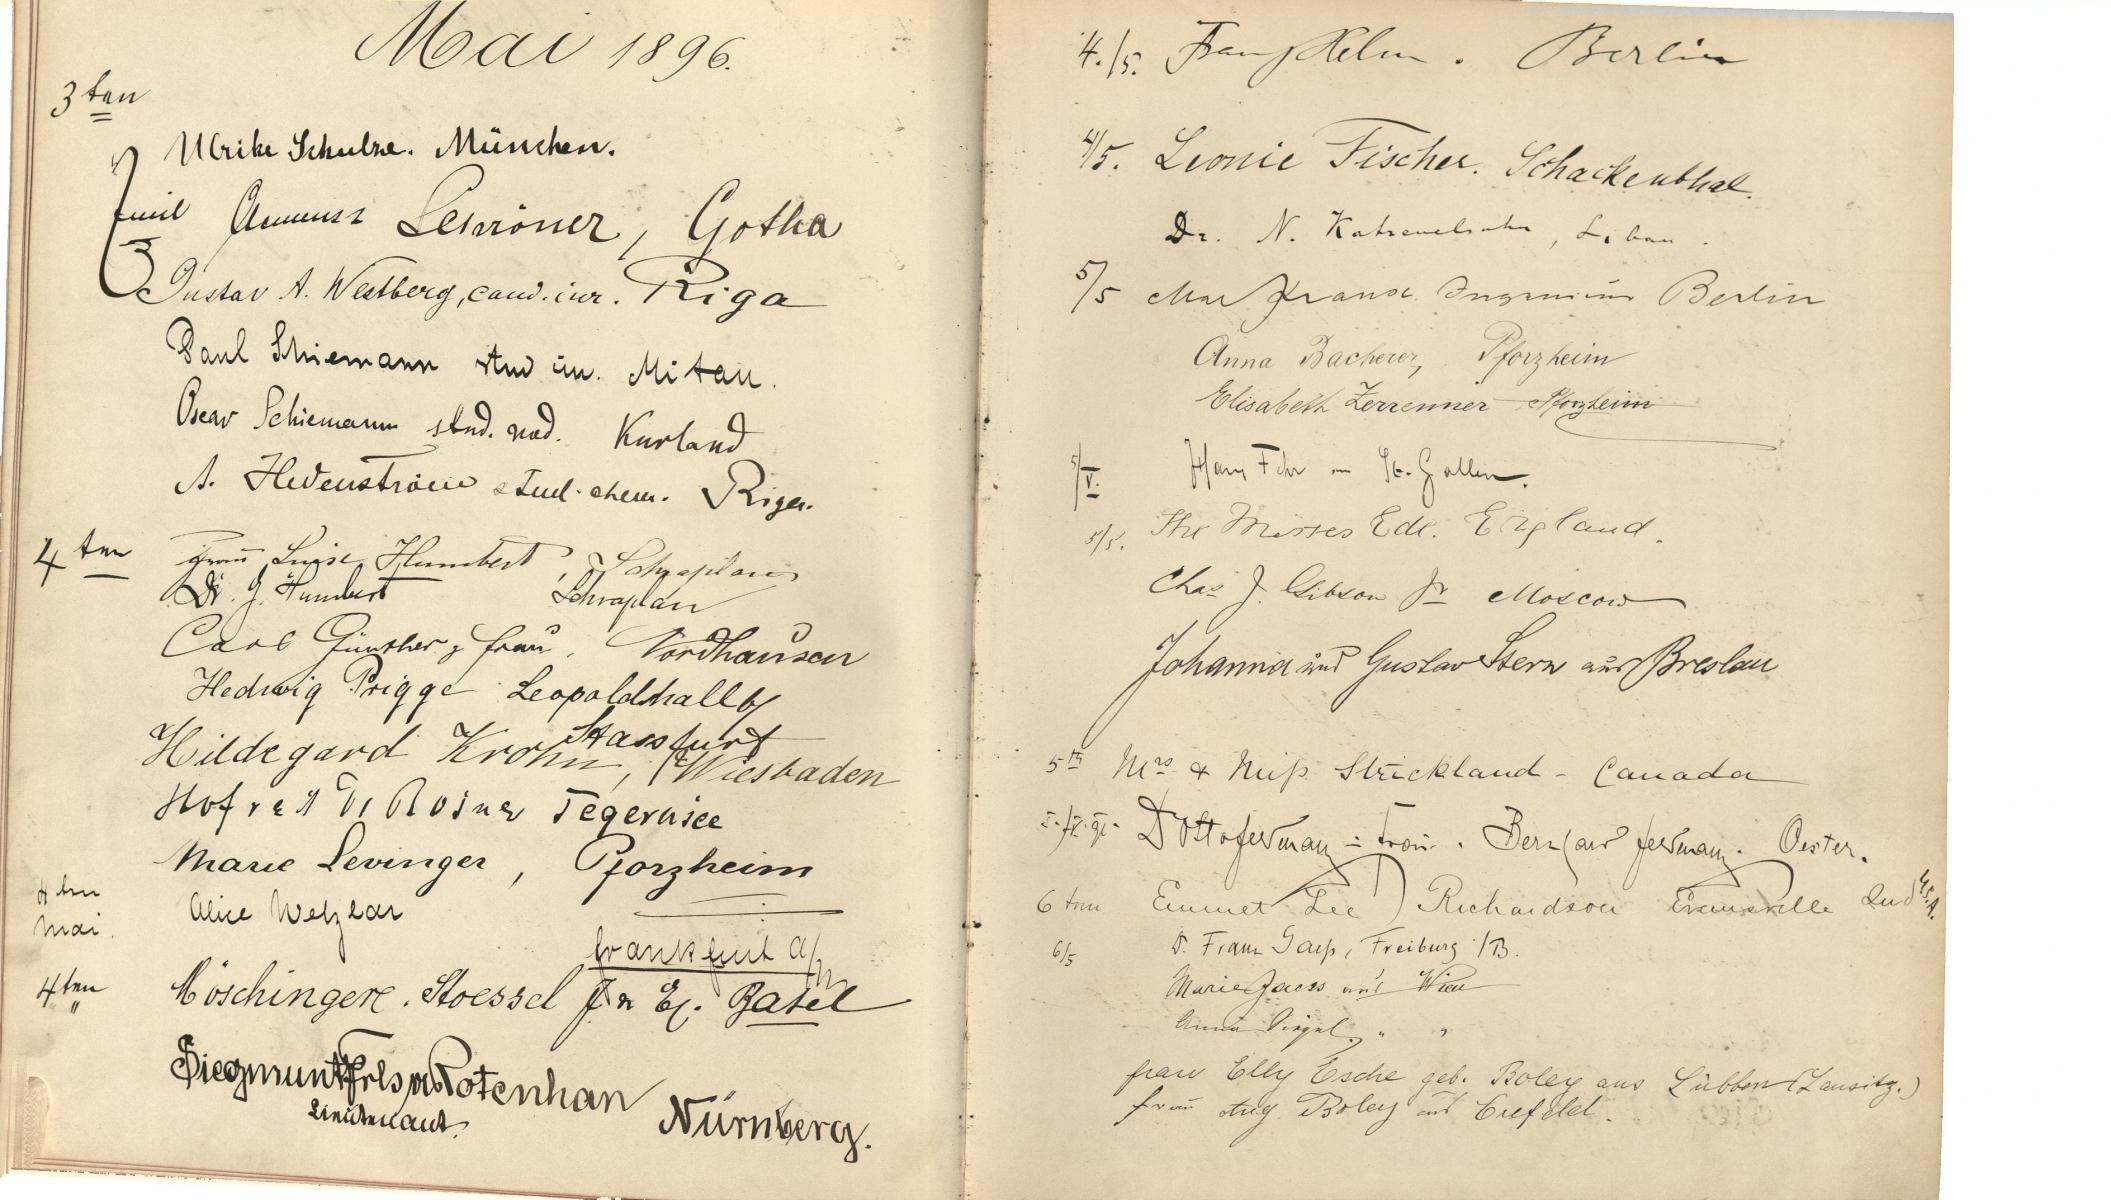 Mai 1896.
3 ten
Ulrike Schulze. München.
Gotha
Gustav A. Westberg, cand. iur. Riga
Paul Schiemann stud iur. Mitau.
Oscar Schiemann stud. med. Kurland
A. Hedenström stud. chem. Riga.
4 ten Frau Luise Humbert, Schraplau
Dr. J. Humbert Schraplau
Carl Günther & Frau, Nordhausen
Hedwig Prigge Leopoldshall b/
Stassfurt
Hildegard Krohn, Wiesbaden
Hofrat Dr Tegernsee
Marie Levinger, Pforzheim
4 ten
Mai.
Alice Wetzlar
Frankfurt a/M
4 ten
" Stoessel Basel
Siegmund Rotenhan
Lieutenant. Nürnberg.
4./5. Franz Helm. Berlin
4/5. Leonie Fischer. Schackenthal.
Dr. N. Katzenelsohn, Libau.
5/5 Ingenieur Berlin
Anna Bacherer, Pforzheim
Elisabeth Zerrenner Pforzheim
5/V. Hans Fehr St. Gallen.
5/5. The Misses Ede. England.
Chas J. Gibson Jr Moscow
Johanna und Gustav Stern aus Breslau
5th Mrs & Miss Strickland - Canada
Oester.
6 ten Emmet Lee Richardson Evansville Ind U.S.A.
6/5 Dr. Franz Freiburg i/B.
Marie Jaess aus Wien
Anna " "
Frau Elly Esche geb. Boley aus Lübben (Lausitz.)
Frau Aug. Boley aus Crefeld.